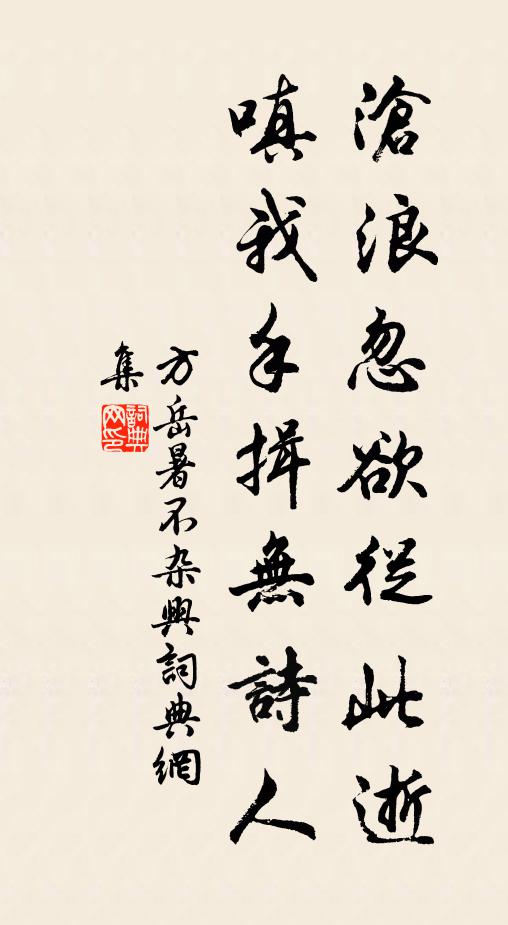 滄浪忽欲從此逝
嗔我手揖無詩人
方岳暑不杂興詞典網
集
詞典
网印